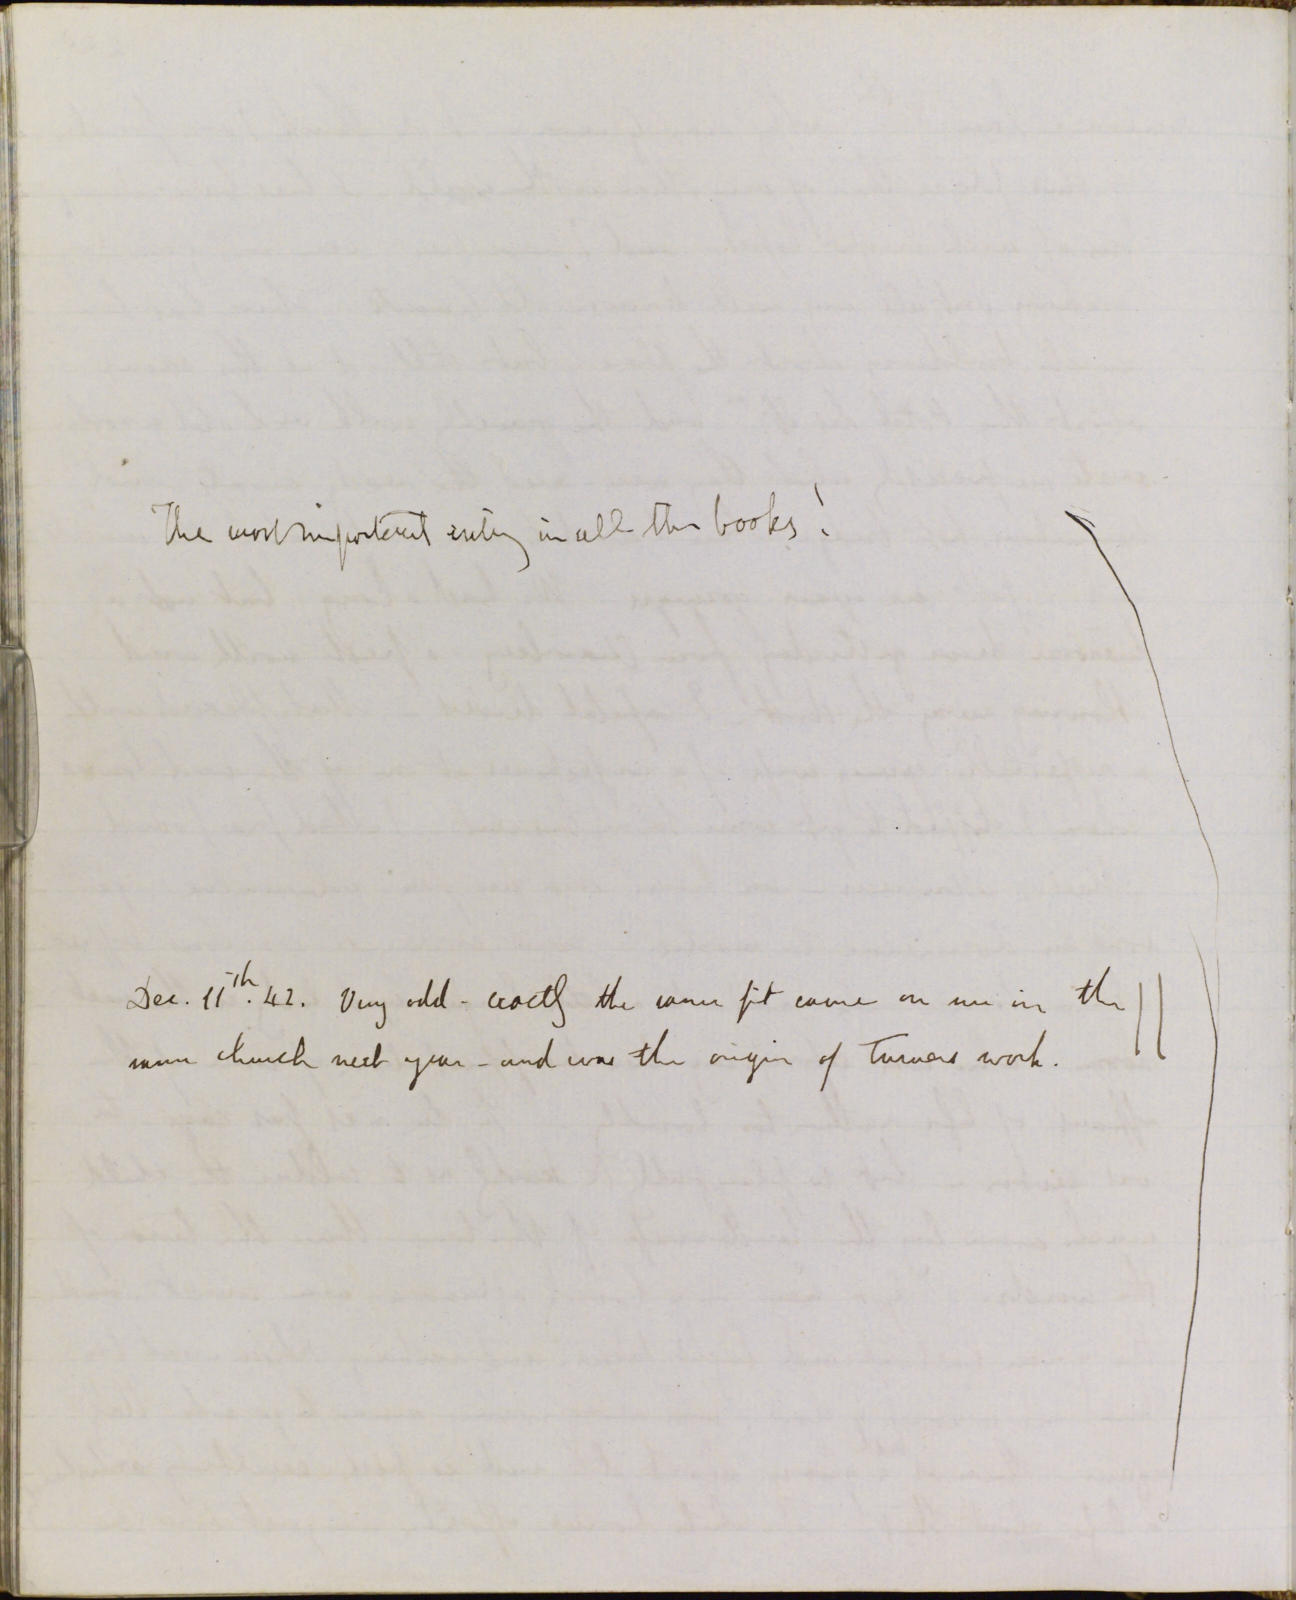 The most important entry in all the books!
Dec. 11th. 42. Very odd - exactly the same fit came on me in the
same church next year - and was the origin of Turners work.